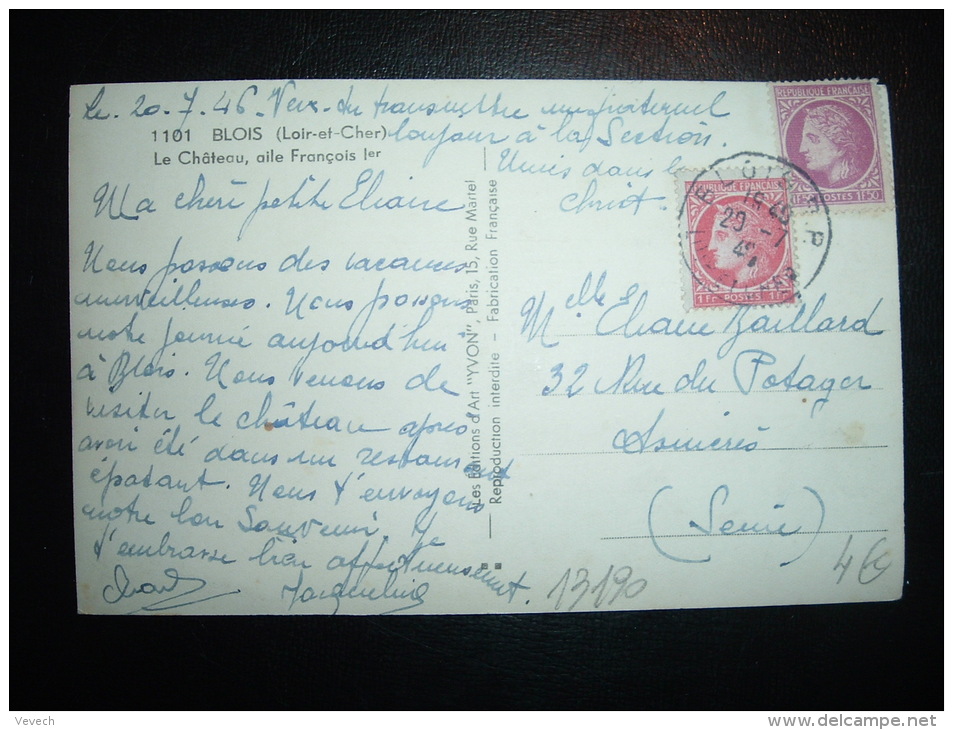 Le. 20.7.46. Veux-tu transmettre mon fraternel
bonjour à la Section.
Unies dans le
Christ.
1101 BLOIS (Loir-et-Cher)
Le Château, aile François Ier
Ma chère petite Eliane
Nous passons des vacances
merveilleuses. Nous passons
notre journée aujourd'hui
à Blois. Nous venons de
visiter le château après
avoir été dans un restaurant
épatant. Nous t'envoyons
notre bon Souvenir. Je
t'embrasse bien affectueusement.
Jacqueline
Les Editions d'Art "YVON", Paris, 15, Rue Martel
Reproduction interdite - Fabrication Française
REPUBLIQUE FRANÇAISE
1F50 POSTES 1F50
REPUBLIQUE FRANÇAISE
1 Fr POSTES 1 Fr
BLOIS R.P.
20 -7
Melle Eliane Baillard
32 Rue du Potager
Asnières
(Seine)
13190
4€
Vevech
www.delcampe.net